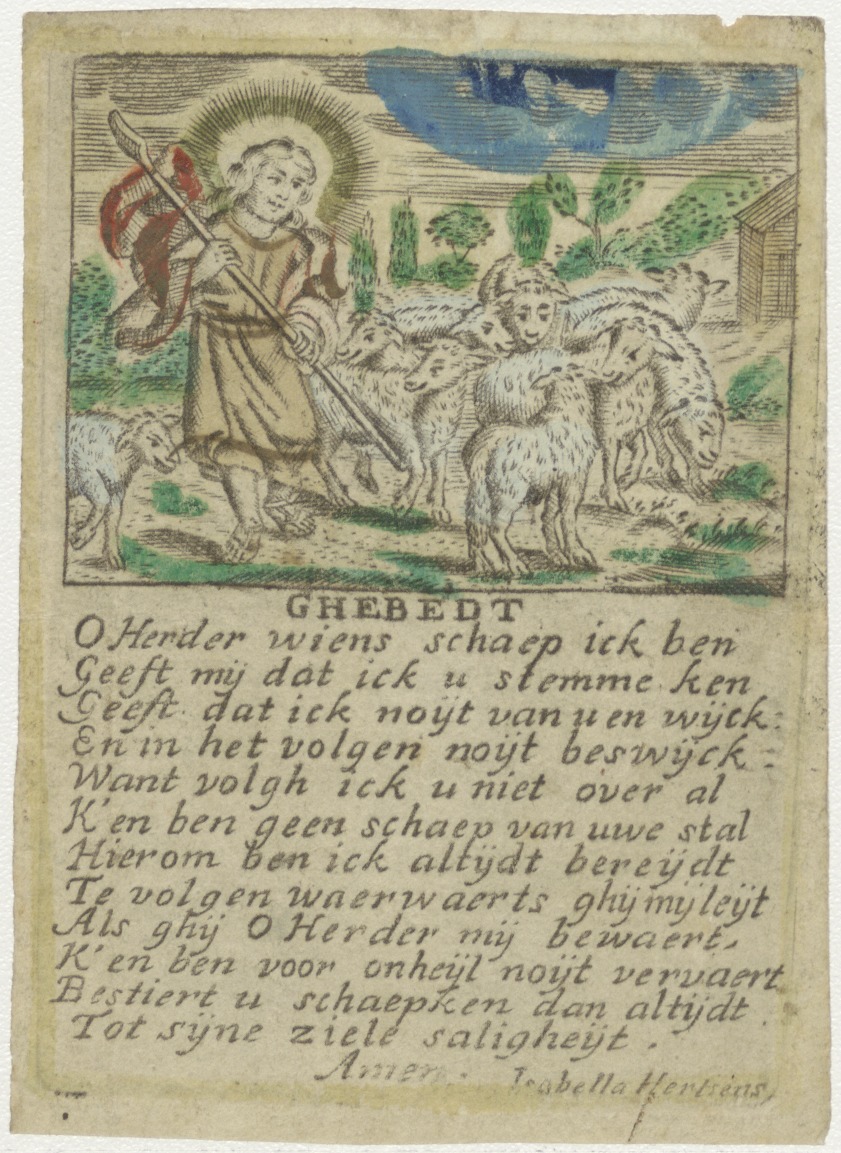 GHEBEDT
O Herder wiens schaep ick ben
Geeft mij dat ick u stemme ken
Geeft dat ick noijt van u en wijck:
En in het volgen noijt beswijck:
Want volgh ick u niet over al
K'en ben geen schaep van uwe stal
Hierom ben ick altijdt bereijdt
Te volgen waerwaerts ghij mij leijt
Als ghij O Herder mij bewaert,
K'en ben voor onheijl noijt vervaert
Bestiert u schaepken dan altijdt.
Tot sijne ziele saligheijt.
Amen. Isabella Hertsens,